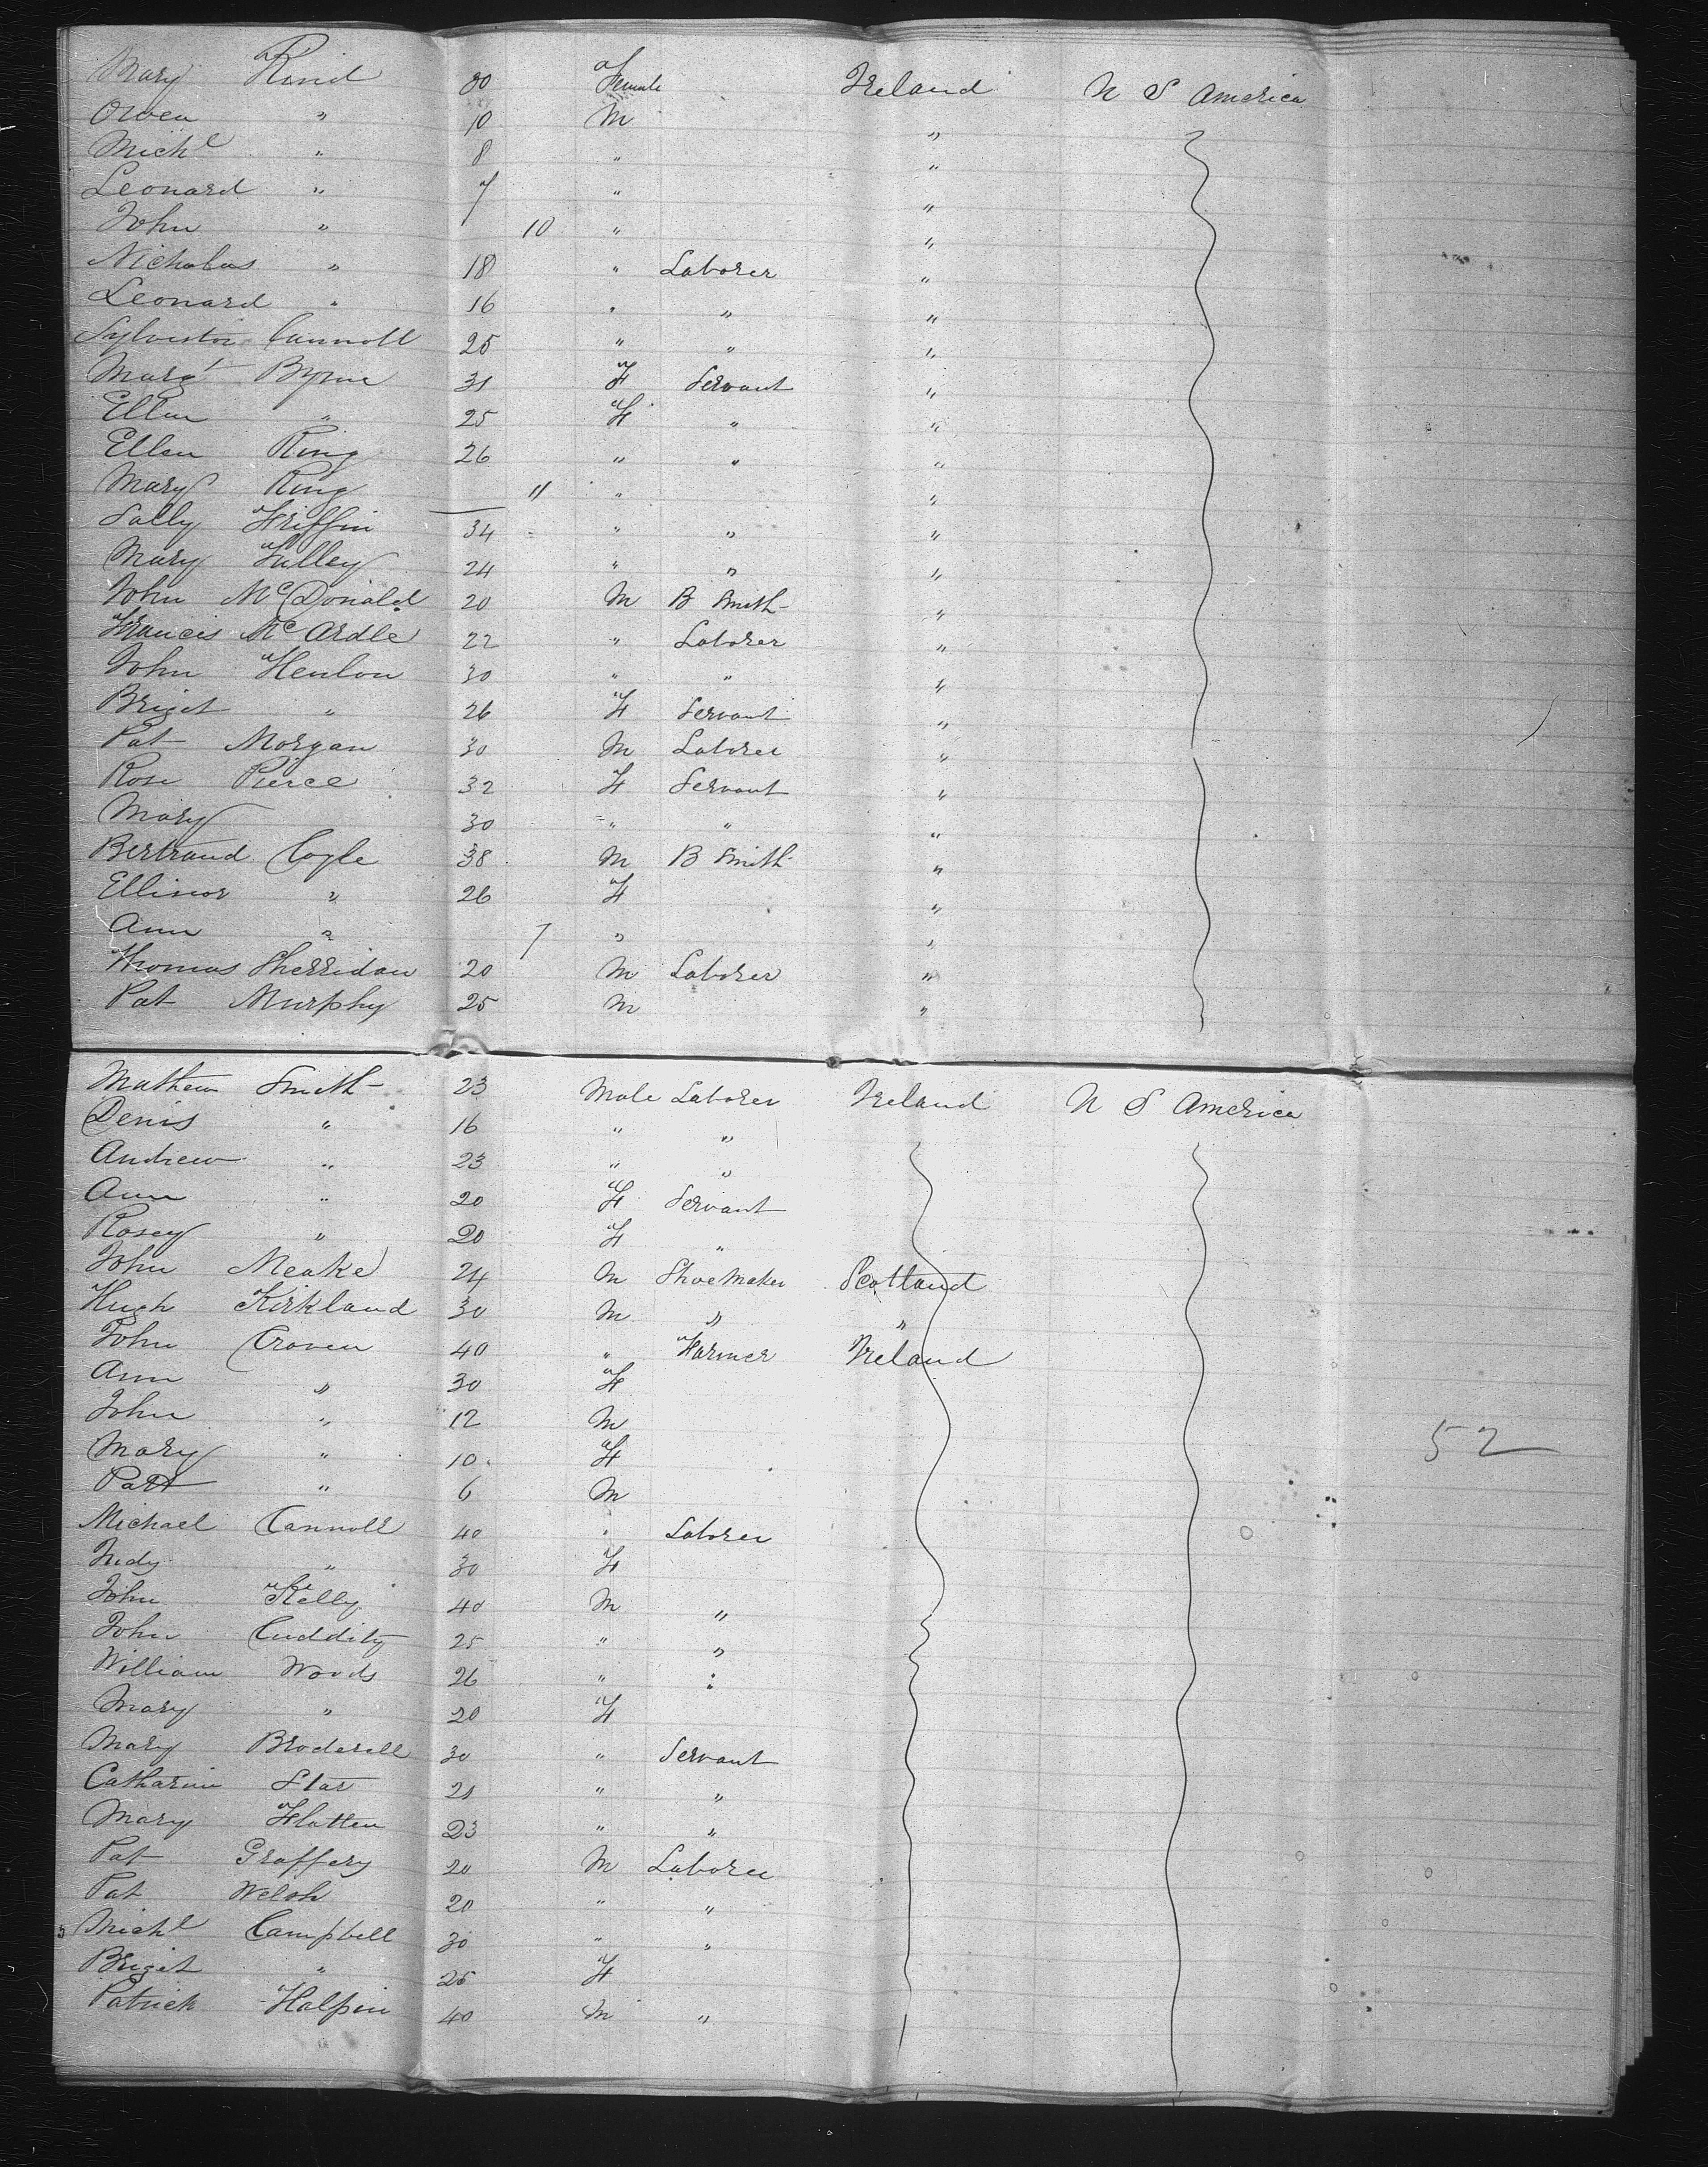 Mary Rind 30 Female Ireland N S America
Owen " 10 M "
Mich^l " 8 " "
Leonard " 7 " "
John " 10 " "
Nicholas " 18 " Laborer "
Leonard " 16 " " "
Sylvester Cannoll 25 " " "
Marg^t Byrne 31 F Servant "
Ellen " 25 F " "
Ellen Ring 26 " " "
Mary Ring 11 " "
Sally Griffin 34 " " "
Mary Fulley 24 " " "
John McDonald 20 M B Smith "
Francis McArdle 22 " Laborer "
John Henlon 30 " " "
Briget " 26 F Servant "
Pat Morgan 30 M Laborer "
Rose Pierce 32 F Servant "
Mary 30 " " "
Bertrand Cogle 38 M B Smith "
Ellinor " 26 F "
Ann " 7 " "
Thomas Sherridan 20 M Laborer "
Pat Murphy 25 M "
Mathew Smith 23 Male Laborer Ireland N S America
Denis " 16 " "
Andrew " 23 " "
Ann " 20 F Servant
Rosey " 20 F "
John Meake 24 M Shoemaker Scotland
Hugh Kirkland 30 M " "
John Croven 40 " Farmer Ireland
Ann " 30 F
John " 12 M
Mary " 10 F
Patt " 6 M
52
Michael Cannoll 40 " Laborer
Judy " 30 F
John Kelly 40 M "
John Cuddity 25 " "
William Woods 26 " "
Mary " 20 F
Mary Broderell 30 " Servant
Catharine Star 21 " "
Mary Flatten 23 " "
Pat Graffery 20 M Laborer
Pat Welsh 20 " "
Mich^l Campbell 30 " "
Briget " 25 F
Patrick Halpin 40 M "